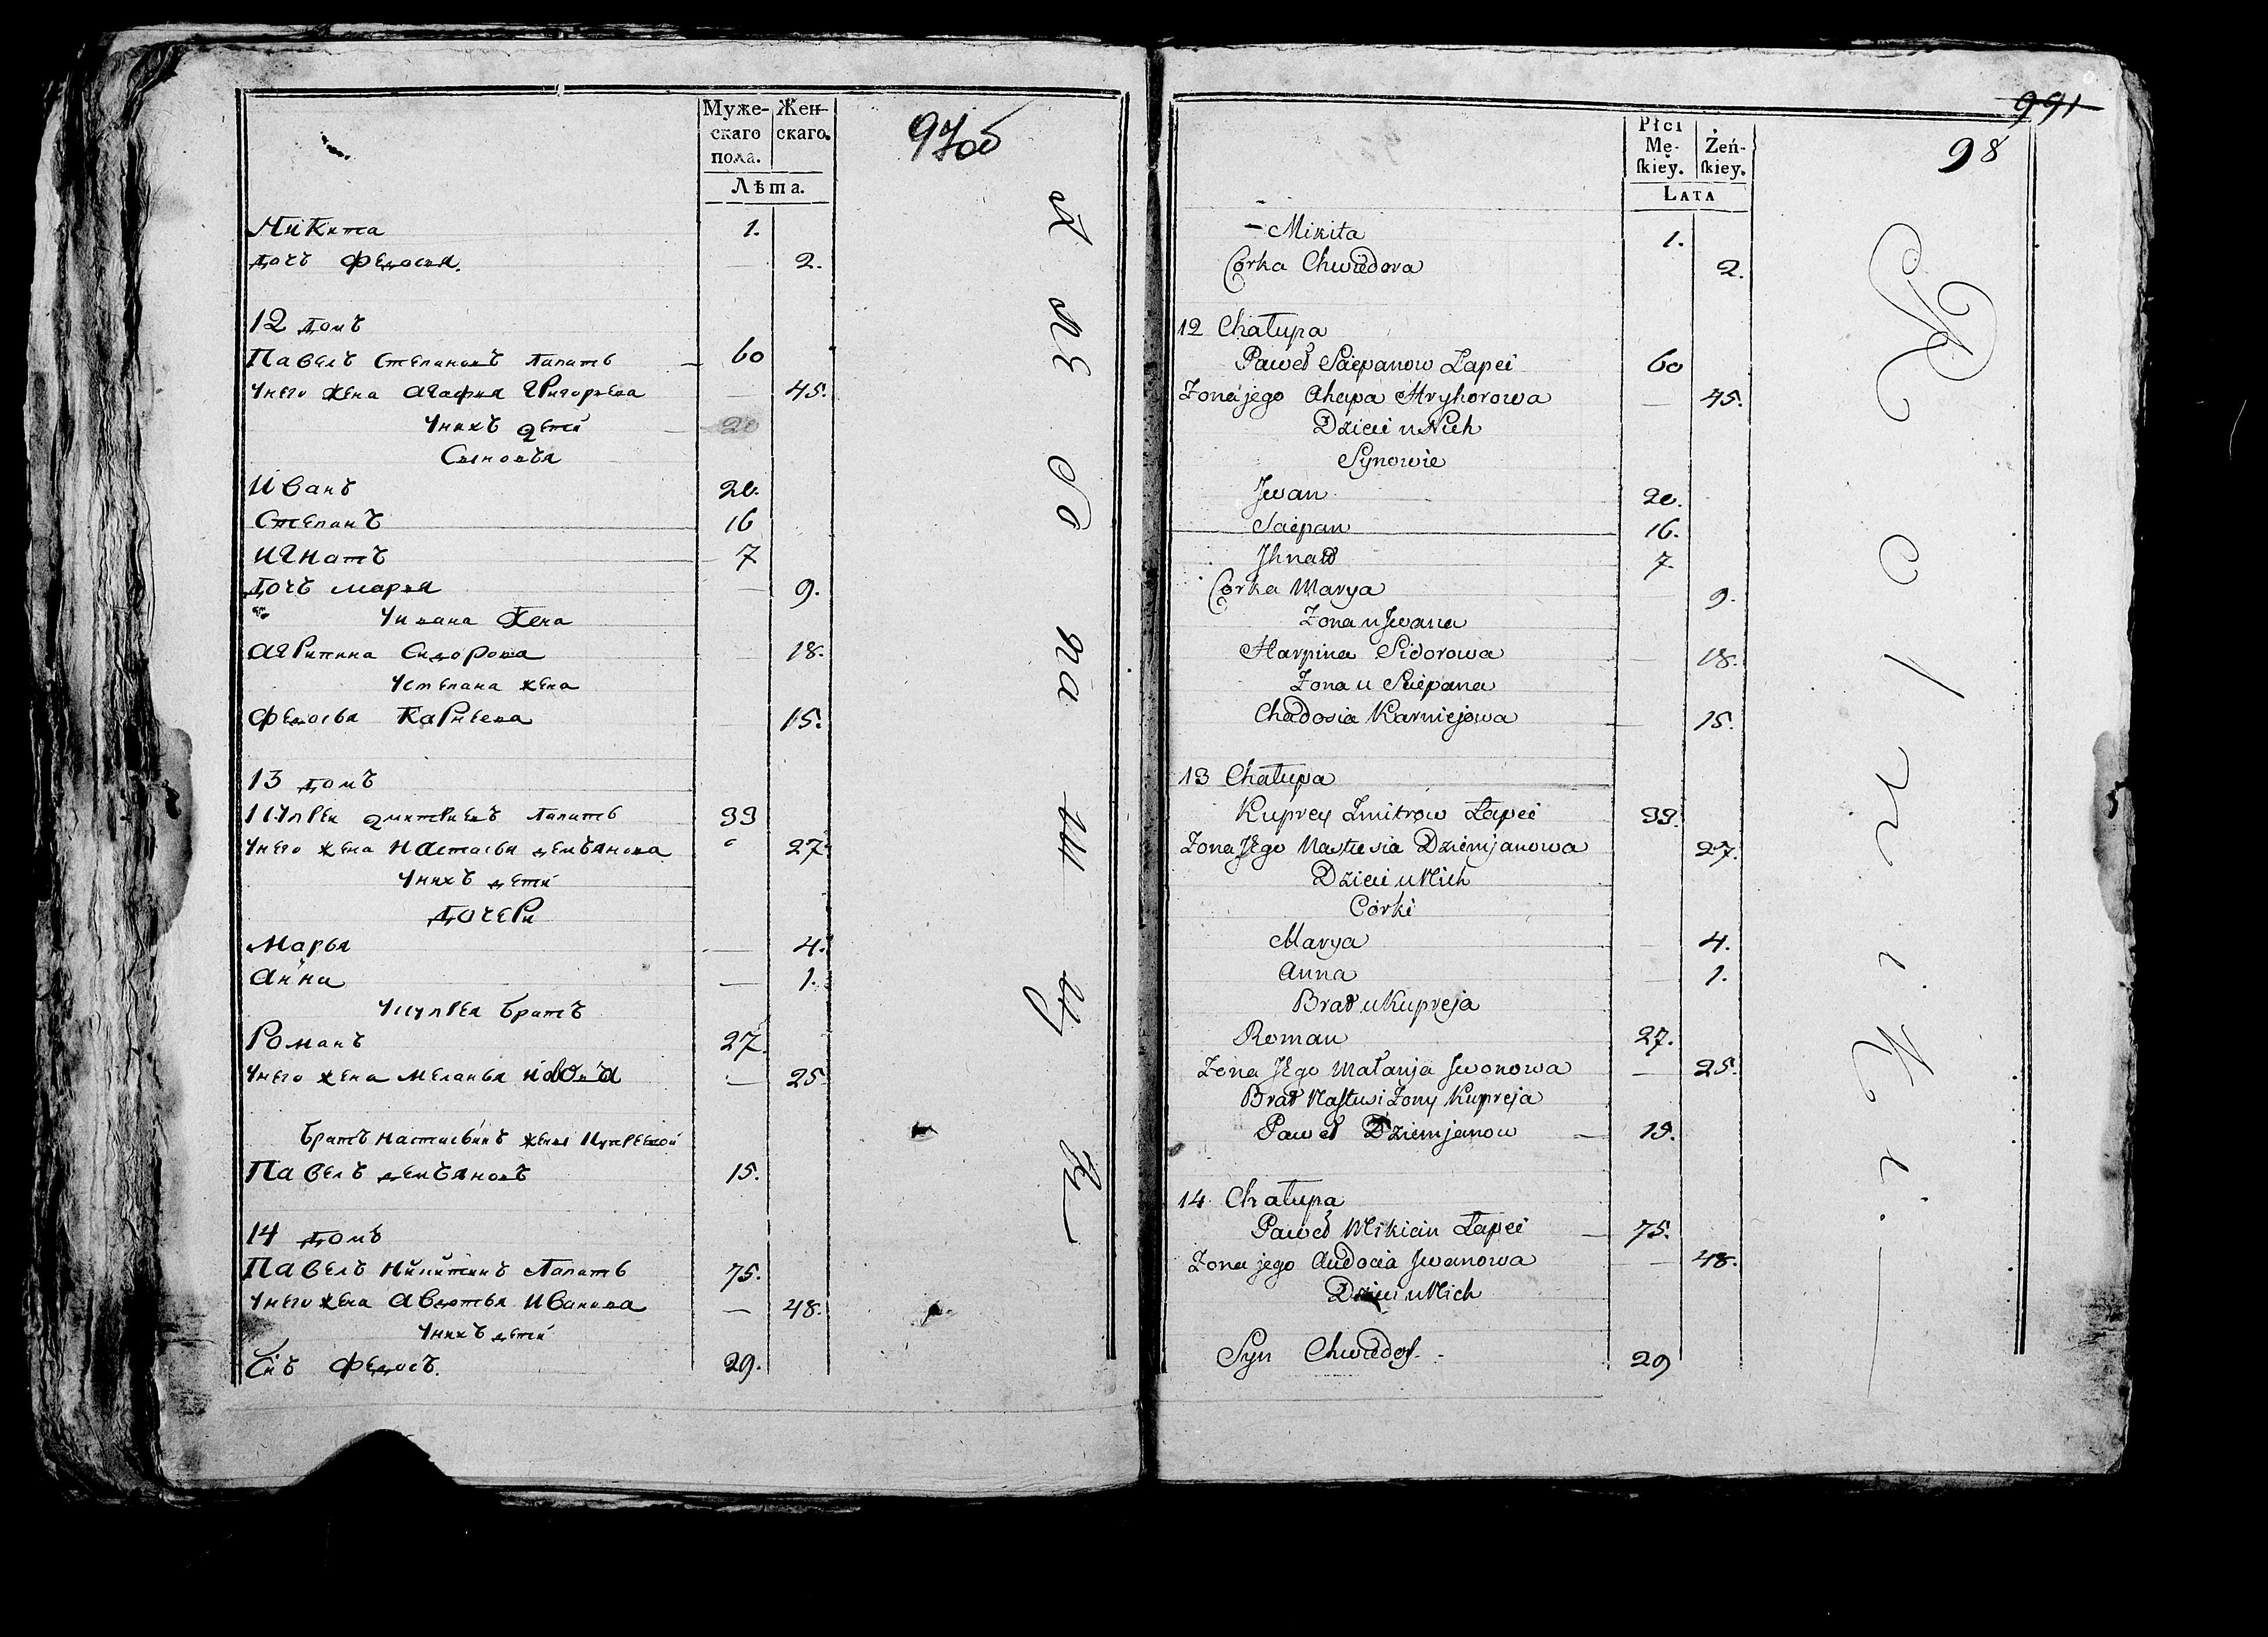 Муже-
скаго
пола.
Жен-
скаго.
Лѣта.
97об
Никита 1.
дочь Федосия. 2.
12 домъ
Павелъ Степановъ Лапать 60
Унего жена Агафия Григорьева 45.
Унихъ дети
Сыновья
Иванъ 20.
Степанъ 16
Игнатъ 7
дочь марья 9.
Уивана Жена
Агрипина Сидорова 18.
Устепана жена
Федосья Карнеева 15.
13 домъ
дмитриевъ Лапать 33
Унего жена Настасья демьянова 27.
Унихъ дети
дочери
Марья 4.
Анна 1.
братъ
Романъ 27.
Унего жена Меланья 25
братъ жены
Павелъ демьяновъ 15.
14 домъ
Павелъ Никитинъ Лапать 75.
Унего жена Авдотья Иванова 48.
Унихъ дети
Сiнъ Федосъ. 29.
991
98
Płci
Mę-
ſkiey.
Żeń-
ſkiey.
LATA
Mikita 1.
Corka Chwiedora 2.
12 Chałupa
Paweł Sciepanow Łapeć 60
Zona jego Ahapa Hryhorowa 45.
Dzieci u Nich
Synowie
Jwan 20.
Sciepan 16.
Jhnat 7
Corka Marya 9.
Zona u Jwana
Harpina Sidorowa 18.
Zona u Sciepana
Chadosia Karniejowa 15.
13 Chałupa
Kuprey Zmitrow Łapeć 33.
Zona Jego Nastusia Dziemjanowa 27.
Dzieci u Nich
Córki
Marya 4.
Anna 1.
Brat u Kupreja
Roman 27.
Zona Jego Małanja Jwonowa 25.
Brat Nastusi Zony Kupreja
Paweł Dziemjanow 15.
14 Chałupa
Paweł Mikicin Łapeć 75.
Zona jego Audocia Jwanowa 48.
Dzieci u Nich
Syn Chwiedos 29